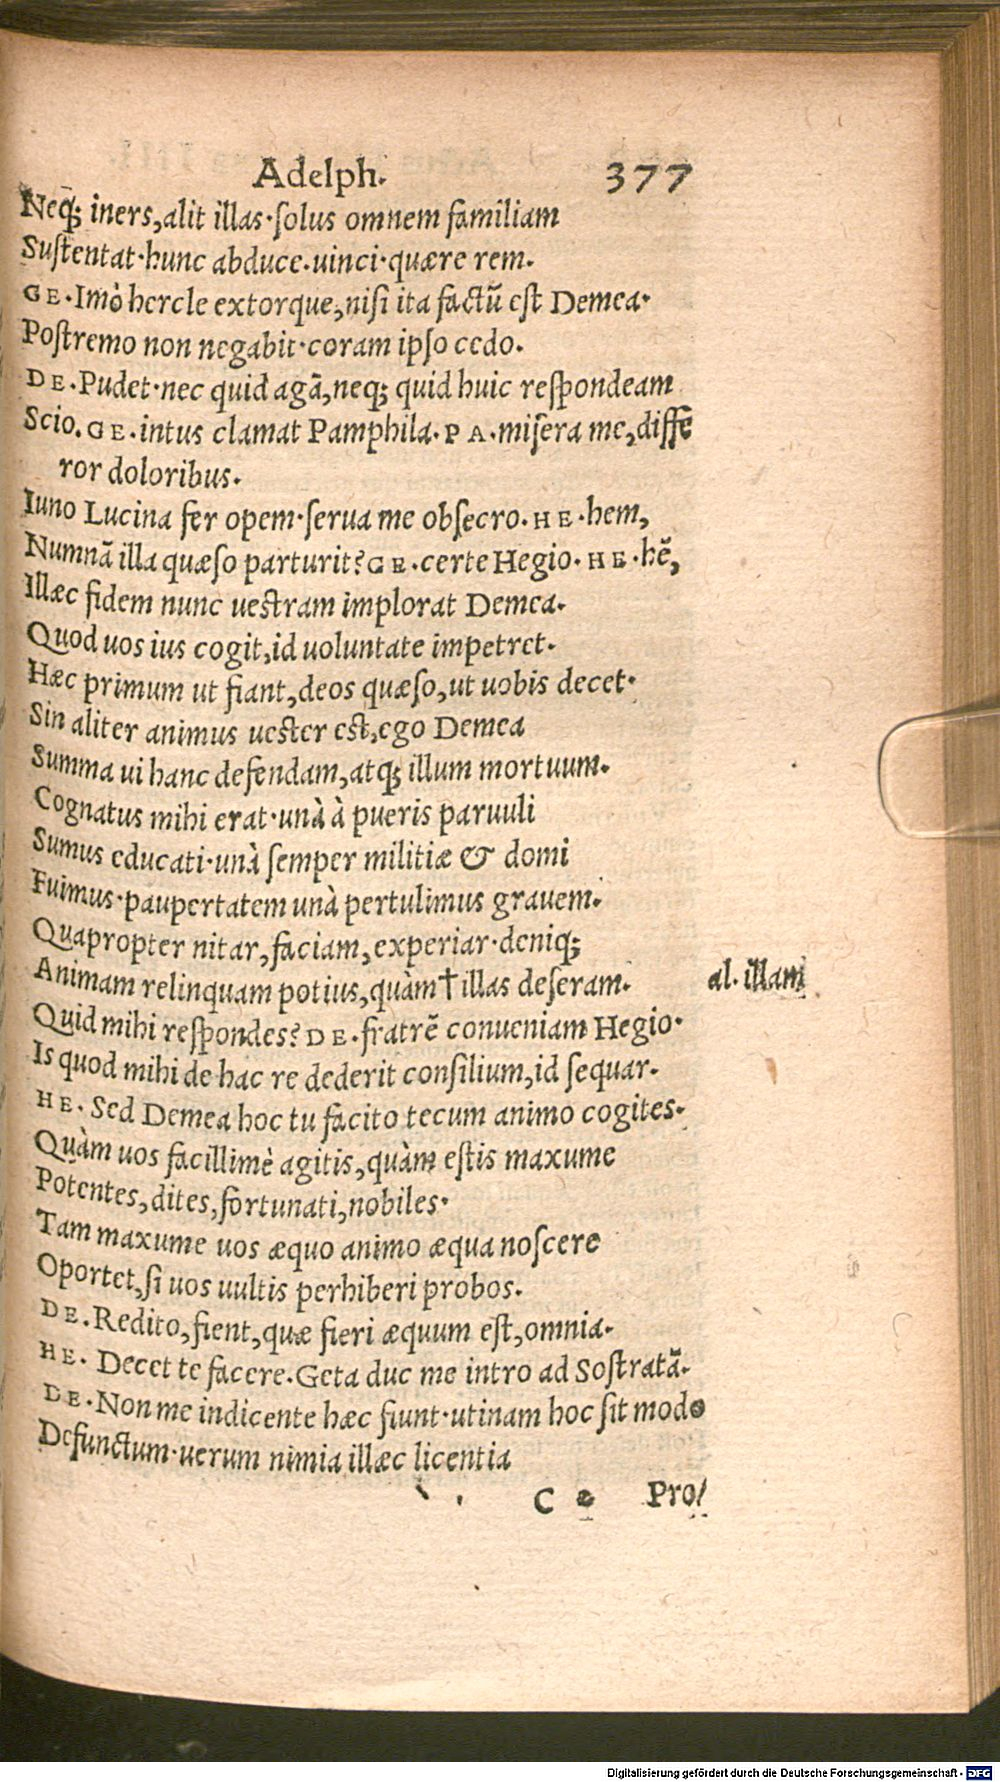 Adelph. 377
Neq; iners, alit illas·ſolus omnem familiam
Suſtentat·hunc abduce.uinci·quære rem.
GE.Imò hercle extorque, niſi ita factũ eſt Demea·
Poſtremo non negabit·coram ipſo cedo.
DE.Pudet·nec quid agã, neq; quid huic reſpondeam
Scio.GE.intus clamat Pamphila.PA.miſera me, diffe
ror doloribus.
Iuno Lucina fer opem·ſerua me obſecro.HE.hem,
Numnã illa quæſo parturit? GE.certe Hegio. HE.hẽ,
Illæc fidem nunc ueſtram implorat Demea.
Quod uos ius cogit, id uoluntate impetret.
Hæc primum ut fiant, deos quæſo, ut uobis decet·
Sin aliter animus ueſter eſt, ego Demea
Summa ui hanc defendam, atq; illum mortuum.
Cognatus mihi erat·unà à pueris paruuli
Sumus educati·unà ſemper militiæ & domi
Fuimus·paupertatem unà pertulimus grauem.
Quapropter nitar, faciam, experiar·deniq;
Animam relinquam potius, quàm† illas deſeram. al. illam
Quid mihi reſpondes? DE.fratrẽ conueniam Hegio·
Is quod mihi de hac re dederit conſilium, id ſequar.
HE. Sed Demea hoc tu facito tecum animo cogites.
Quàm uos facillimè agitis, quàm eſtis maxume
Potentes, dites, fortunati, nobiles·
Tam maxume uos æquo animo æqua noſcere
Oportet, ſi uos uultis perhiberi probos.
DE.Redito, fient, quæ fieri æquum eſt, omnia.
HE. Decet te facere.Geta duc me intro ad Soſtratã.
DE.Non me indicente hæc fiunt·utinam hoc ſit modo
Defunctum·uerum nimia illæc licentia
C Pro/
Digitalisierung gefördert durch die Deutsche Forschungsgemeinschaft - DFG